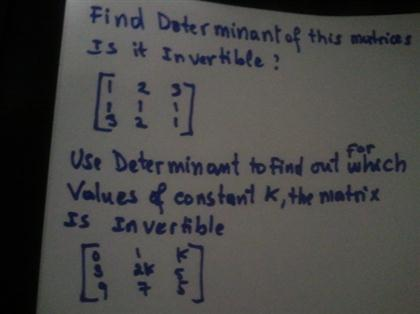 Find Determinant of this matrices
Is it Invertible?
1 2 3
1 1 1
3 2 1
Use Determinant to find out for which
Values of constant K, the matrix
Is Invertible
0 1 K
3 2K 5
9 7 5